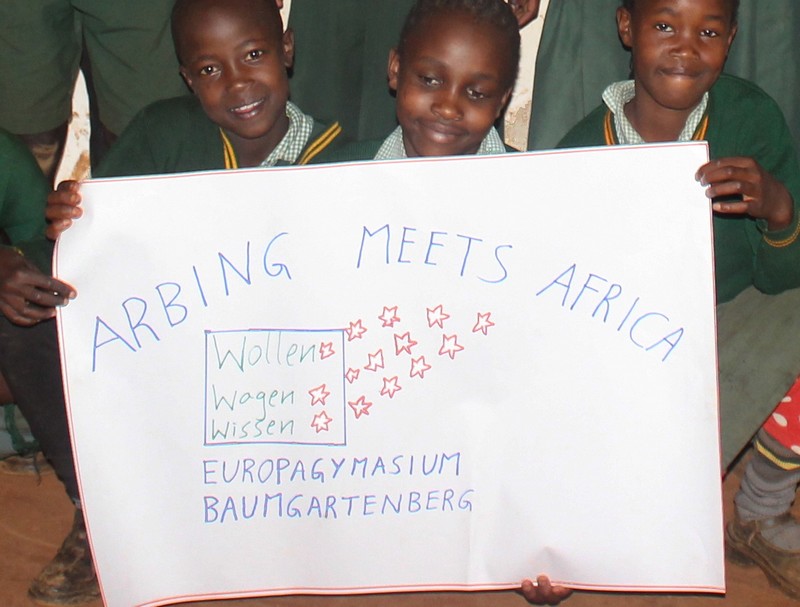 ARBING MEETS AFRICA
Wollen
Wagen
Wissen
EUROPAGYMASIUM
BAUMGARTENBERG